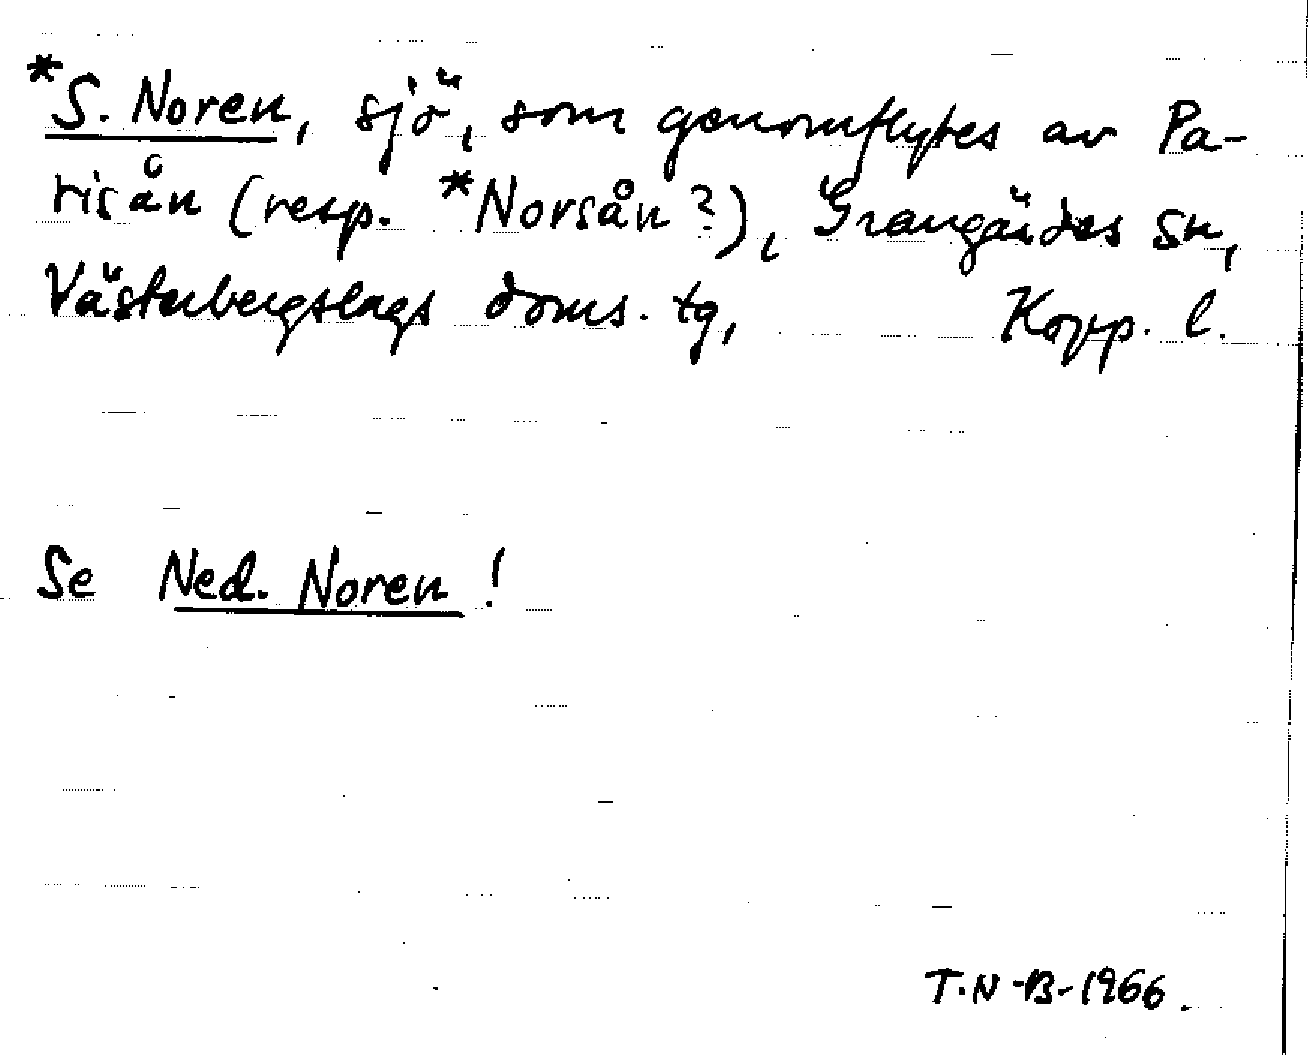 *S. Noren, sjö, som genomflytes av Pa-
risån (resp. *Norsån?), Grangärdes sn,
Västerbergslags doms. tg, Kopp. l.
Se Ned. Noren!
T.N-B-1966.